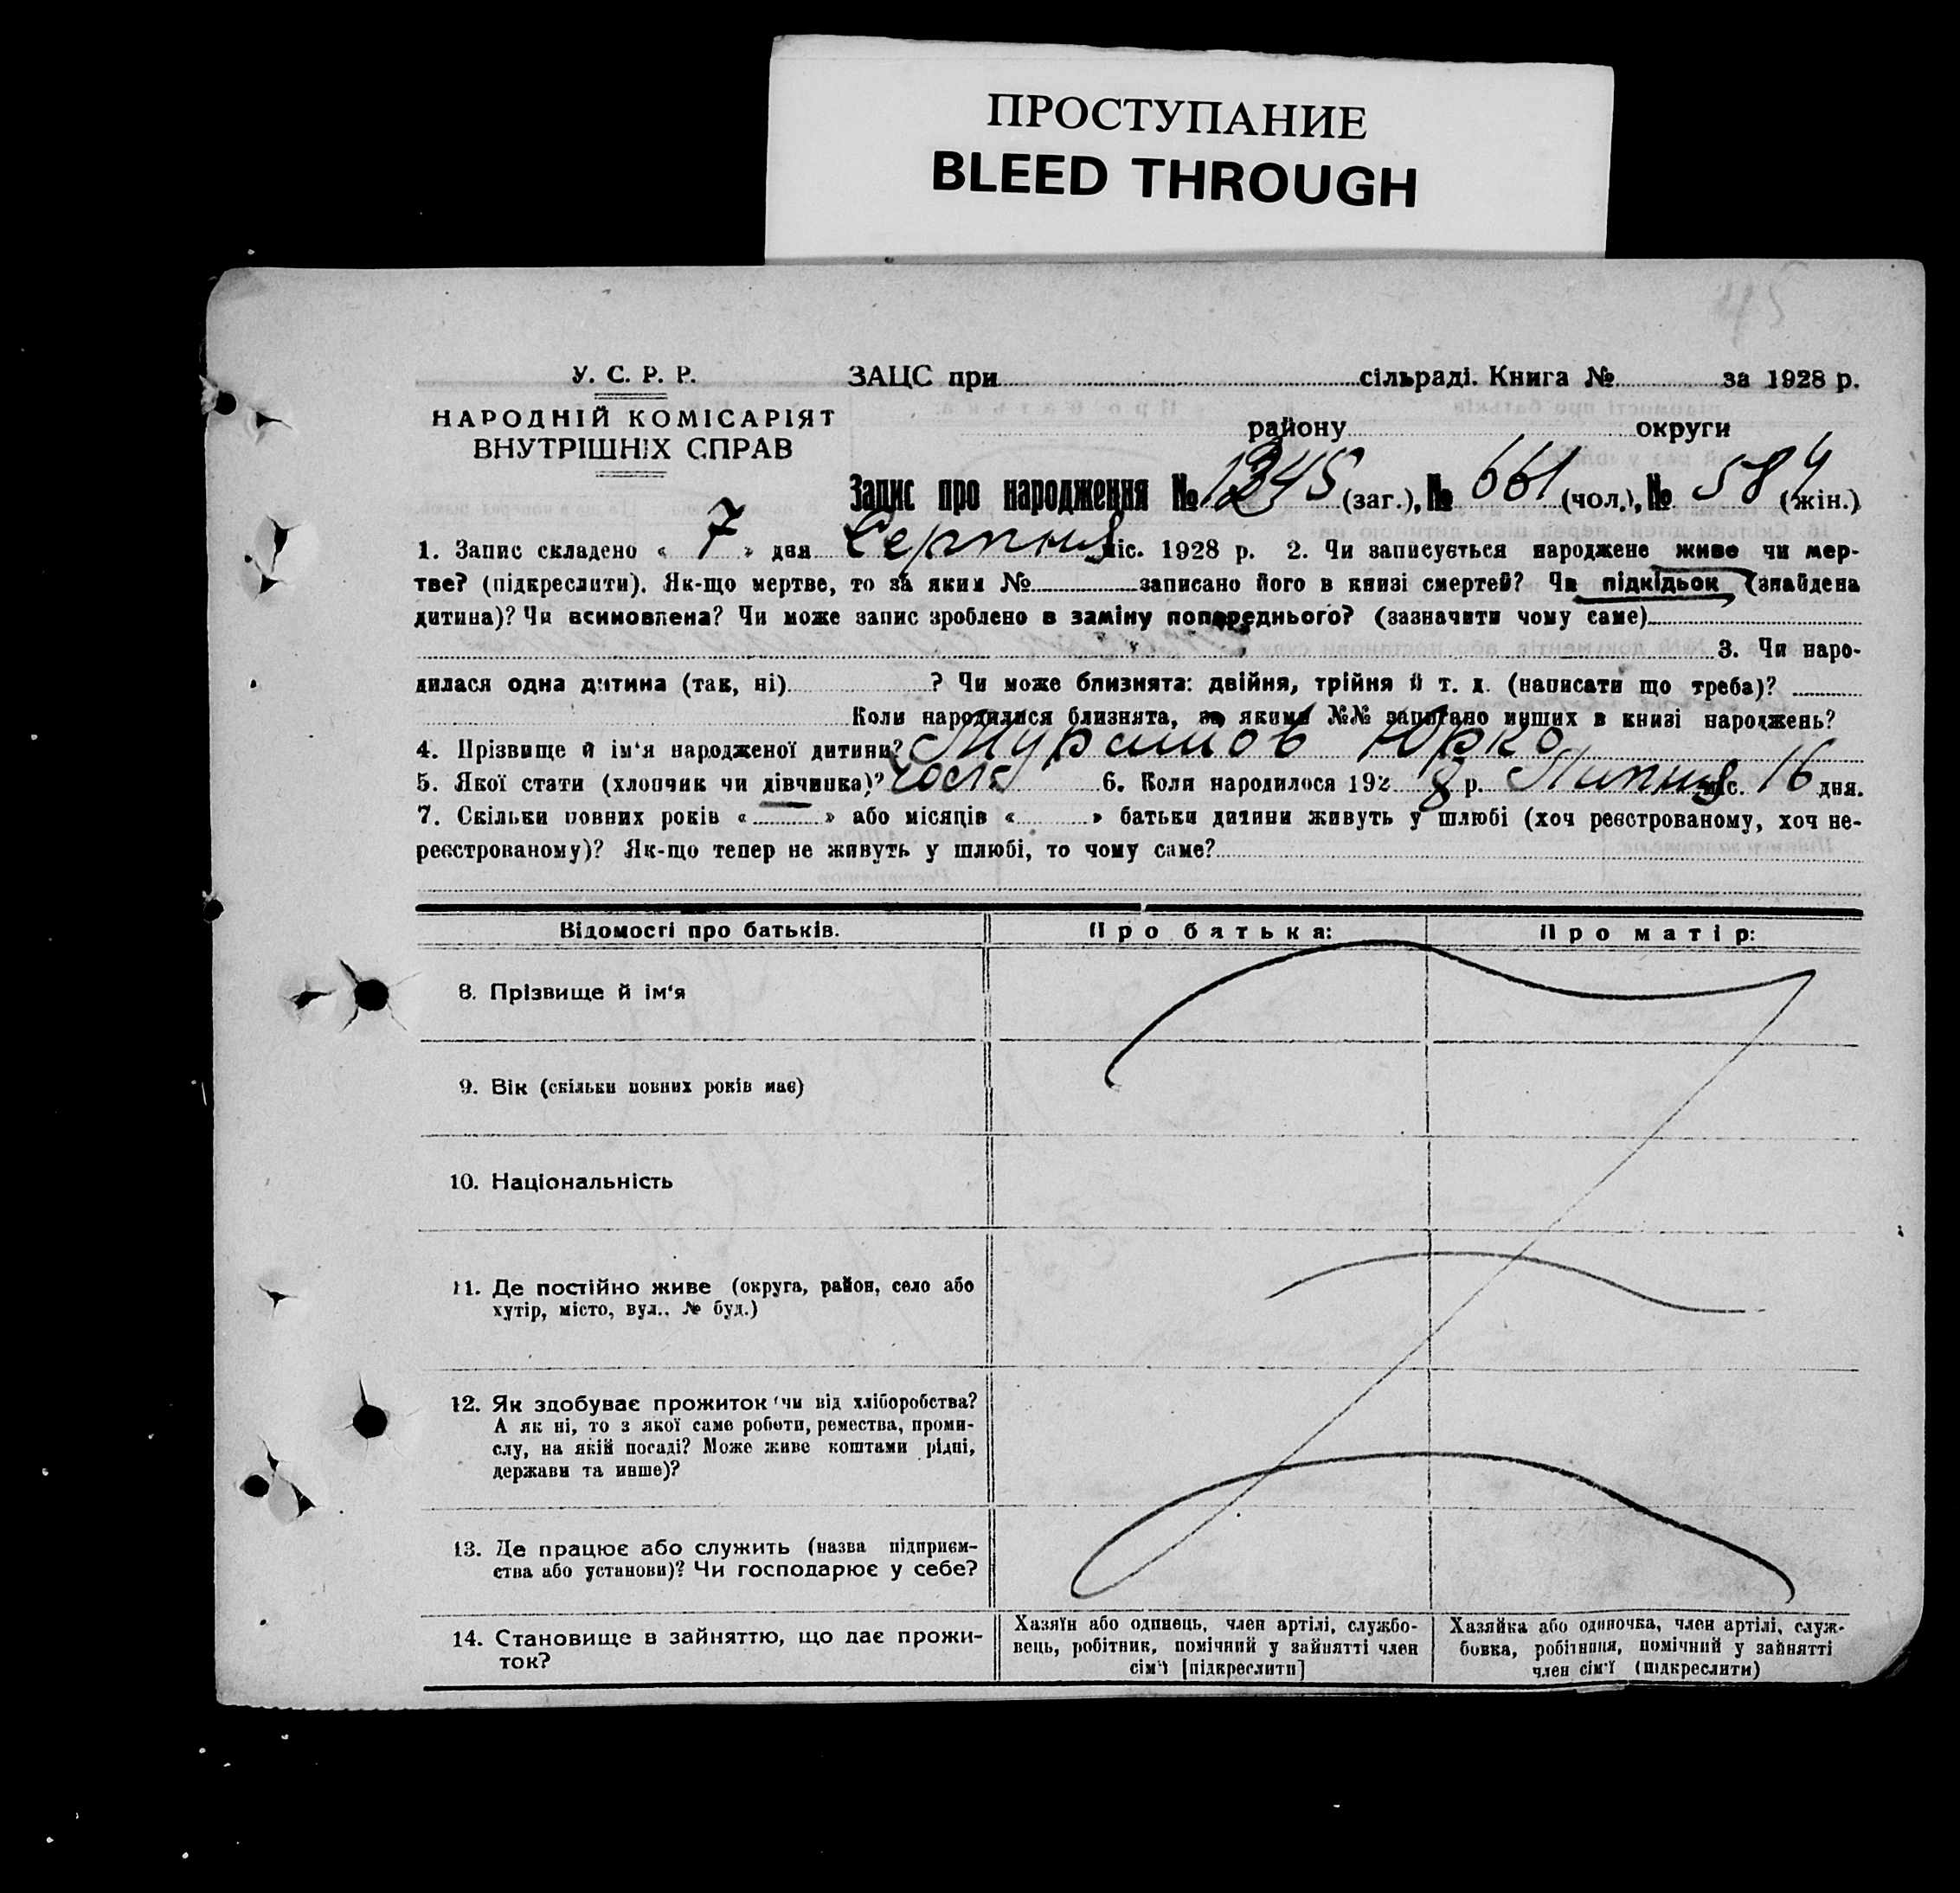 ПРОСТУПАНИЕ
BLEED THROUGH
45
У. С. Р. Р.
НАРОДНІЙ КОМІСАРІЯТ
ВНУТРІШНІХ СПРАВ
ЗАЦС при сільраді. Книга № за 1928 р.
району округи
Запис про народження № 1245 (заг.), № 661 (чол.), № 584 (жін.)
1. Запис складено « 7 » дня Серпня міс. 1928 р. 2. Чи записується народжене живе чи мер-
тве? (підкреслити). Як-що мертве, то за яким № записано його в книзі смертей? Чи підкідьок (знайдена
дитина)? Чи всиновлена? Чи може запис зроблено в заміну попереднього? (зазначити чому саме)
3. Чи наро-
дилася одна дитина (так, ні) ? Чи може близнята: двійня, трійня й т. д. (написати що треба)?
Коли народилися близнята, за якими №№ записано инших в книзі народжень?
4. Прізвище й ім‘я народженої дитини? Юрко
5. Якої стати (хлопчик чи дівчинка)? 6. Коли народилося 1928 р. Липня міс. 16 дня.
7. Скільки повних років « » або місяців « » батьки дитини живуть у шлюбі (хоч реєстрованому, хоч не-
реєстрованому)? Як-що тепер не живуть у шлюбі, то чому саме?
Відомості про батьків. Про батька: Про матір:
8. Прізвище й ім‘я
9. Вік (скільки повних років має)
10. Національність
11. Де постійно живе (округа, район, село або
хутір, місто, вул.. № буд.)
12. Як здобуває прожиток (чи від хліборобства?
А як ні, то з якої саме роботи, ремества, проми-
слу, на якій посаді? Може живе коштами рідні,
держави та инше)?
13. Де працює або служить (назва підприєм-
ства або установи)? Чи господарює у себе?
14. Становище в зайняттю, що дає прожи-
ток?
Хазяїн або одинець, член артілі, службо-
вець, робітник, помічний у зайнятті член
сім‘ї [підкреслити]
Хазяйка або одиночка, член артілі, служ-
бовка, робітниця, помічний у зайнятті
член сім‘ї (підкреслити)